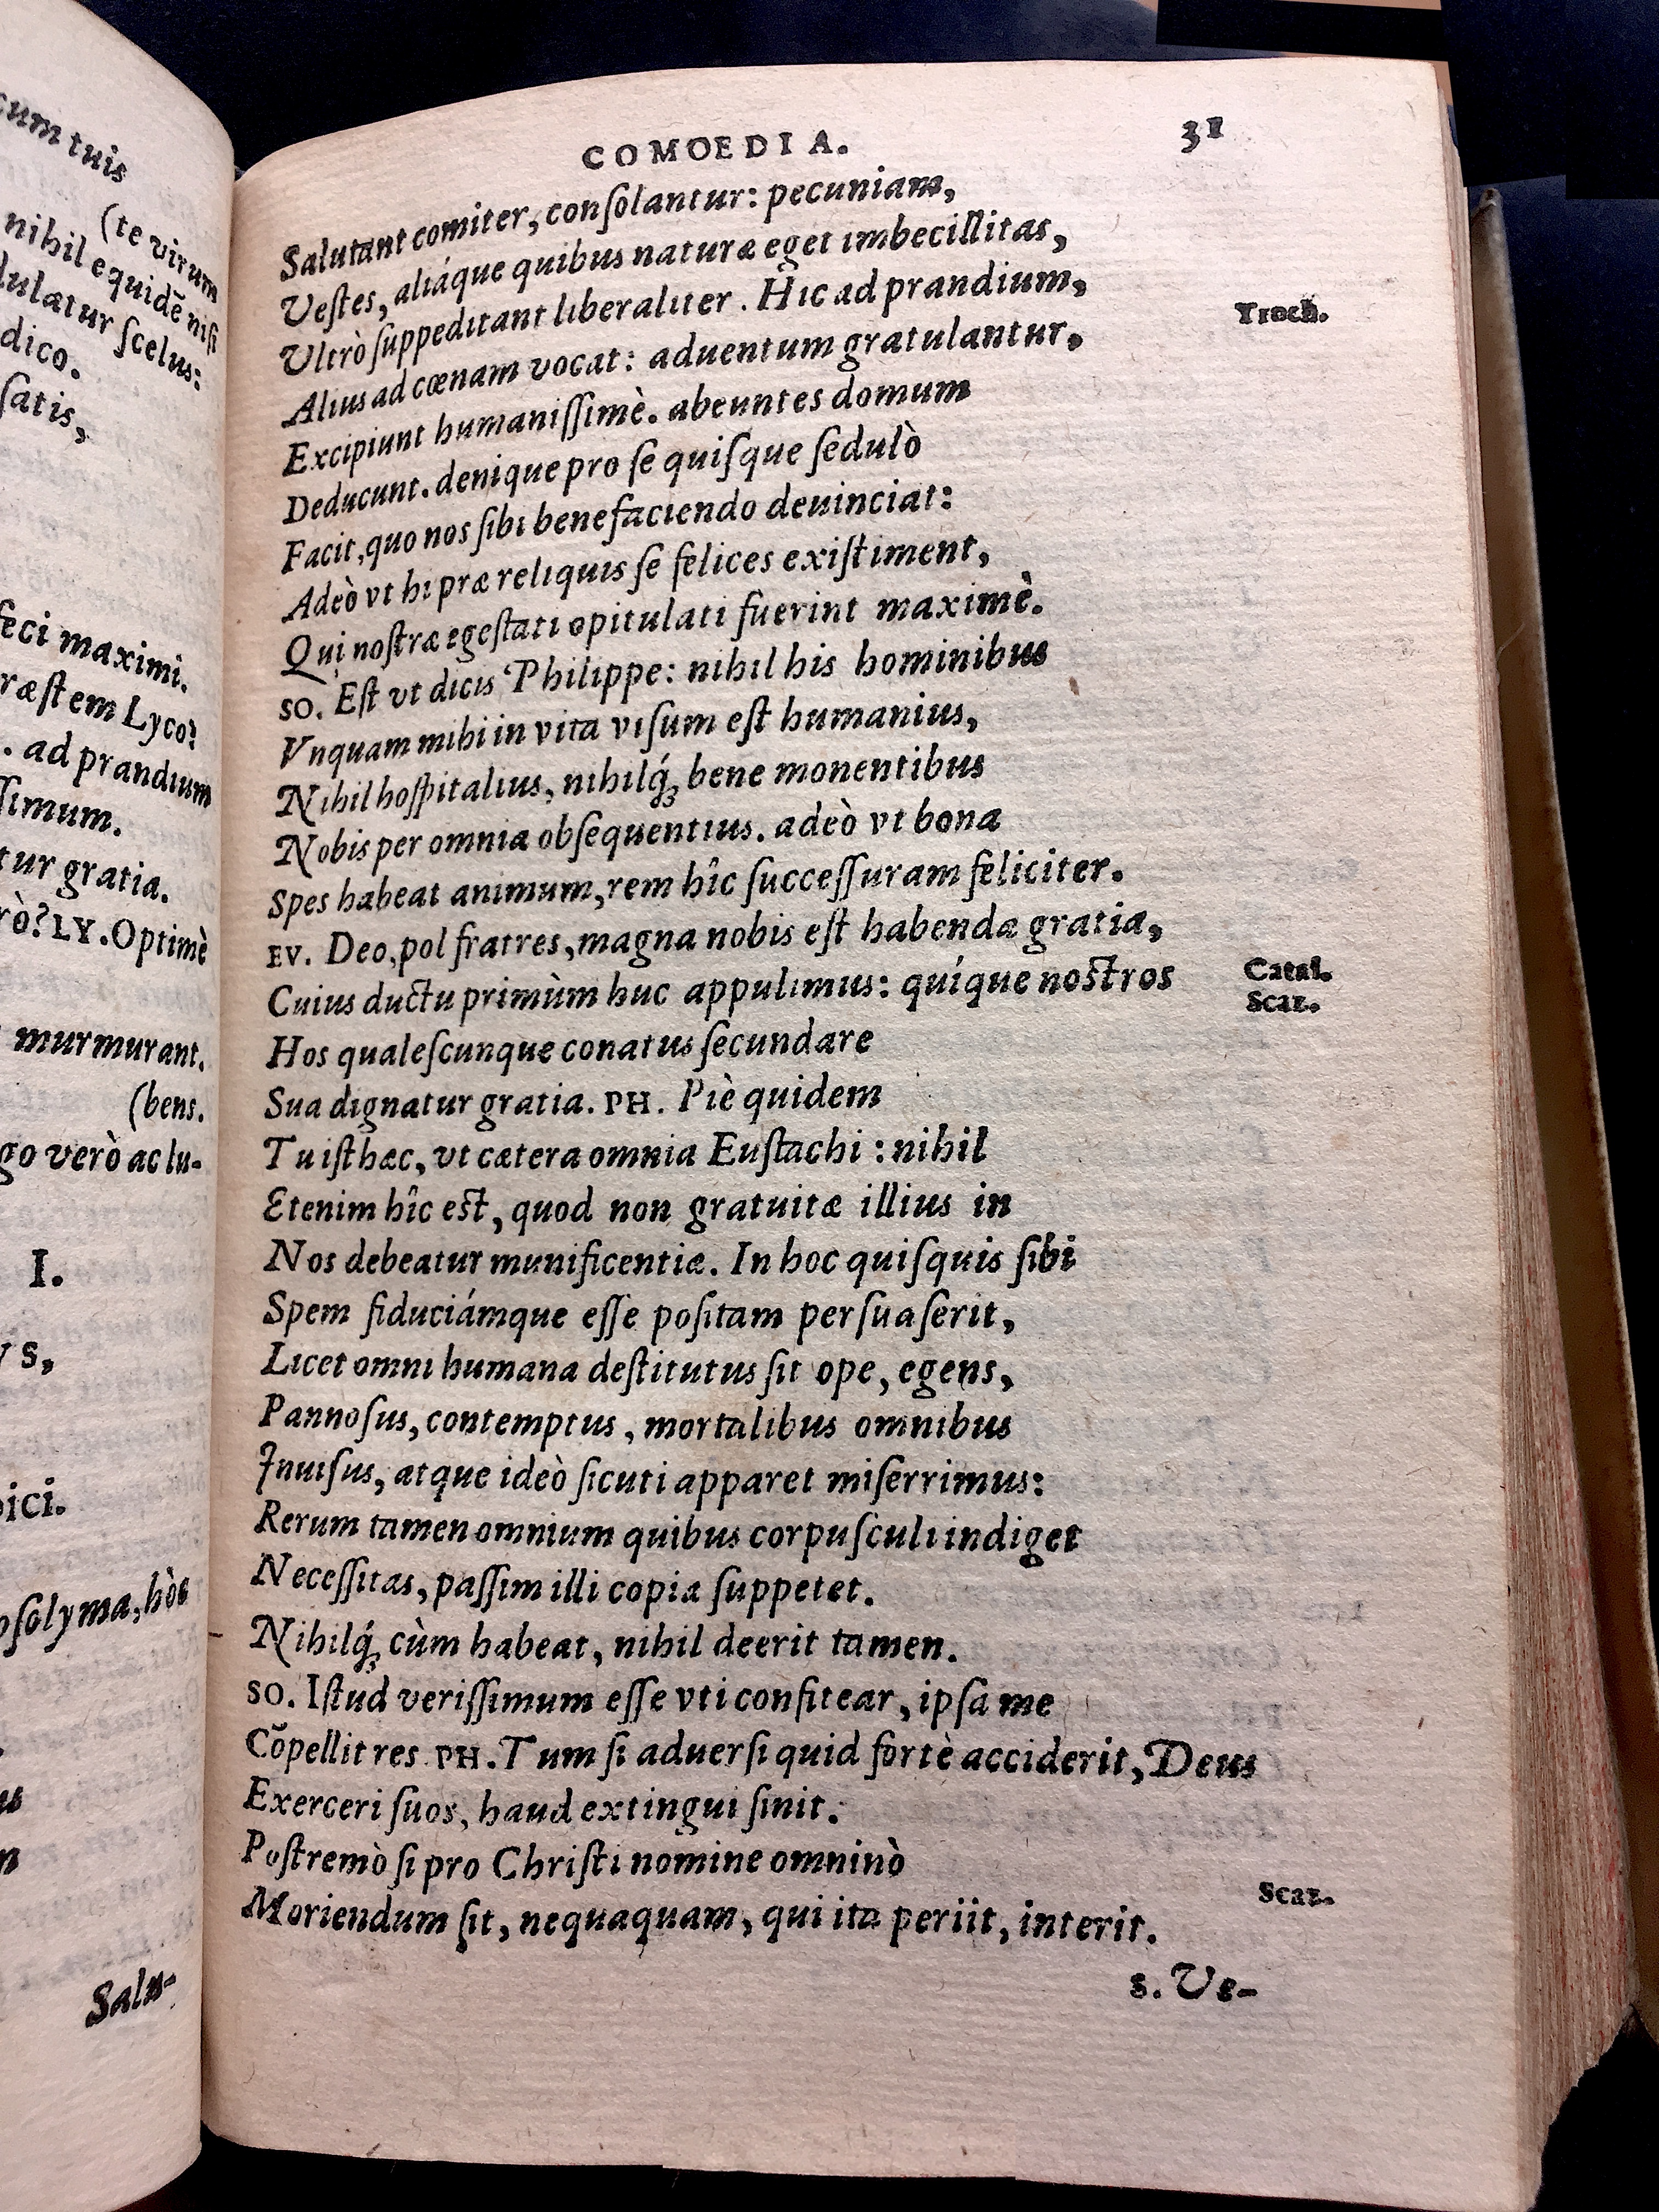 cum tuis
(te virum
nihil equidē nisi
dulatur scelus:
dico.
satis,
feci maximi.
ræstem Lyco?
. ad prandium
ssimum.
tur gratia.
rò? LY. Optimè
murmurant.
(bens.
go verò ac lu-
I.
VS,
pici.
osolyma, hôc
Salu-
COMOEDIA. 31
Salutant comiter, consolantur: pecuniam,
Vestes, aliáque quibus naturæ eget imbecillitas,
Vltrò suppeditant liberaliter. Hic ad prandium, Troch.
Alius ad cœnam vocat: aduentum gratulantur,
Excipiunt humanissimè. abeuntes domum
Deducunt. denique pro se quisque sedulò
Facit, quo nos sibi benefaciendo deuinciat:
Adeò vt hi præ reliquis se felices existiment,
Qui nostræ egestati opitulati fuerint maximè.
SO. Est vt dicis Philippe: nihil his hominibus
Vnquam mihi in vita visum est humanius,
Nihil hospitalius, nihilq́; bene monentibus
Nobis per omnia obsequentius. adeò vt bona
Spes habeat animum, rem hîc successuram feliciter.
EV. Deo, pol fratres, magna nobis est habenda gratia, Catal.
Cuius ductu primùm huc appulimus: quíque nostros Scaz.
Hos qualescunque conatus secundare
Sua dignatur gratia. PH. Piè quidem
Tu isthæc, vt cætera omnia Eustachi: nihil
Etenim hîc est, quod non gratuitæ illius in
Nos debeatur munificentiæ. In hoc quisquis sibi
Spem fiduciámque esse positam persuaserit,
Licet omni humana destitutus sit ope, egens,
Pannosus, contemptus, mortalibus omnibus
Inuisus, atque ideò sicuti apparet miserrimus:
Rerum tamen omnium quibus corpusculi indiget
Necessitas, passim illi copia suppetet.
Nihilq́; cùm habeat, nihil deerit tamen.
SO. Istud verissimum esse vti confitear, ipsa me
Cõpellit res PH. Tum si aduersi quid fortè acciderit, Deus
Exerceri suos, haud extingui sinit.
Postremò si pro Christi nomine omninò
Moriendum sit, nequaquam, qui ita periit, interit. Scaz.
s. Ve-